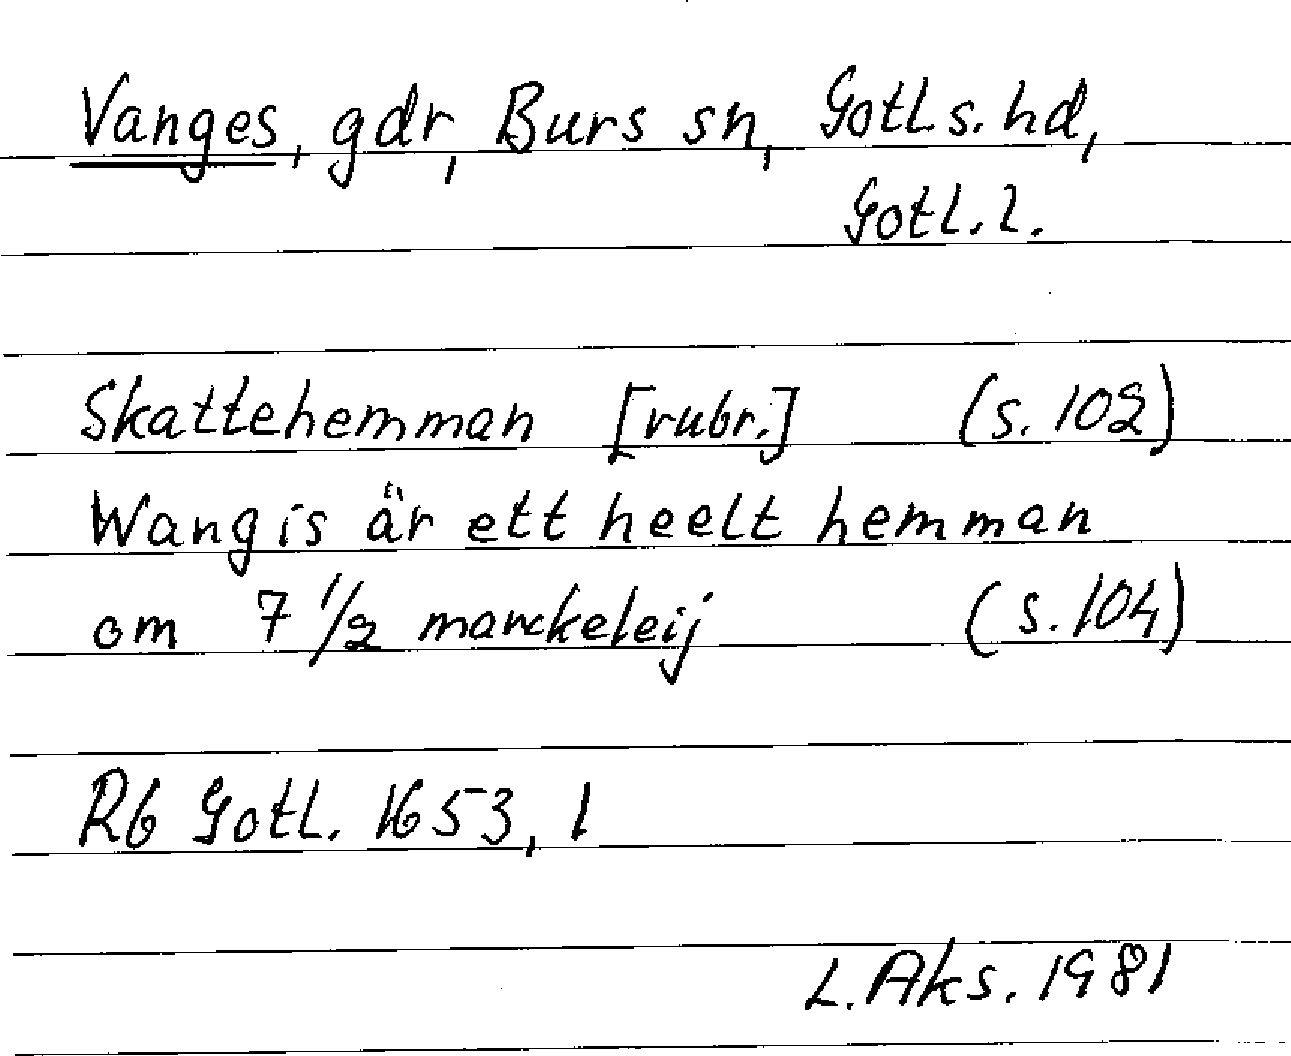 Vanges, gdr, Burs sn, Gotl s. hd,
Gotl. l.
Skattehemman [rubr.] (s. 102)
Wangis är ett heelt hemman
om 7 1/2 marckeleij (s. 104)
Rb Gotl. 1653, 1
L. Aks. 1981